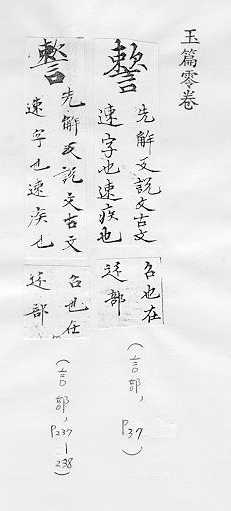 玉篇零卷
先斛反說文古文
速字也速疾也
召也在
辵部
(言部, P37)
先斛反說文古文
速字也速疾也
召也在
辵部
(言部, P237-238)